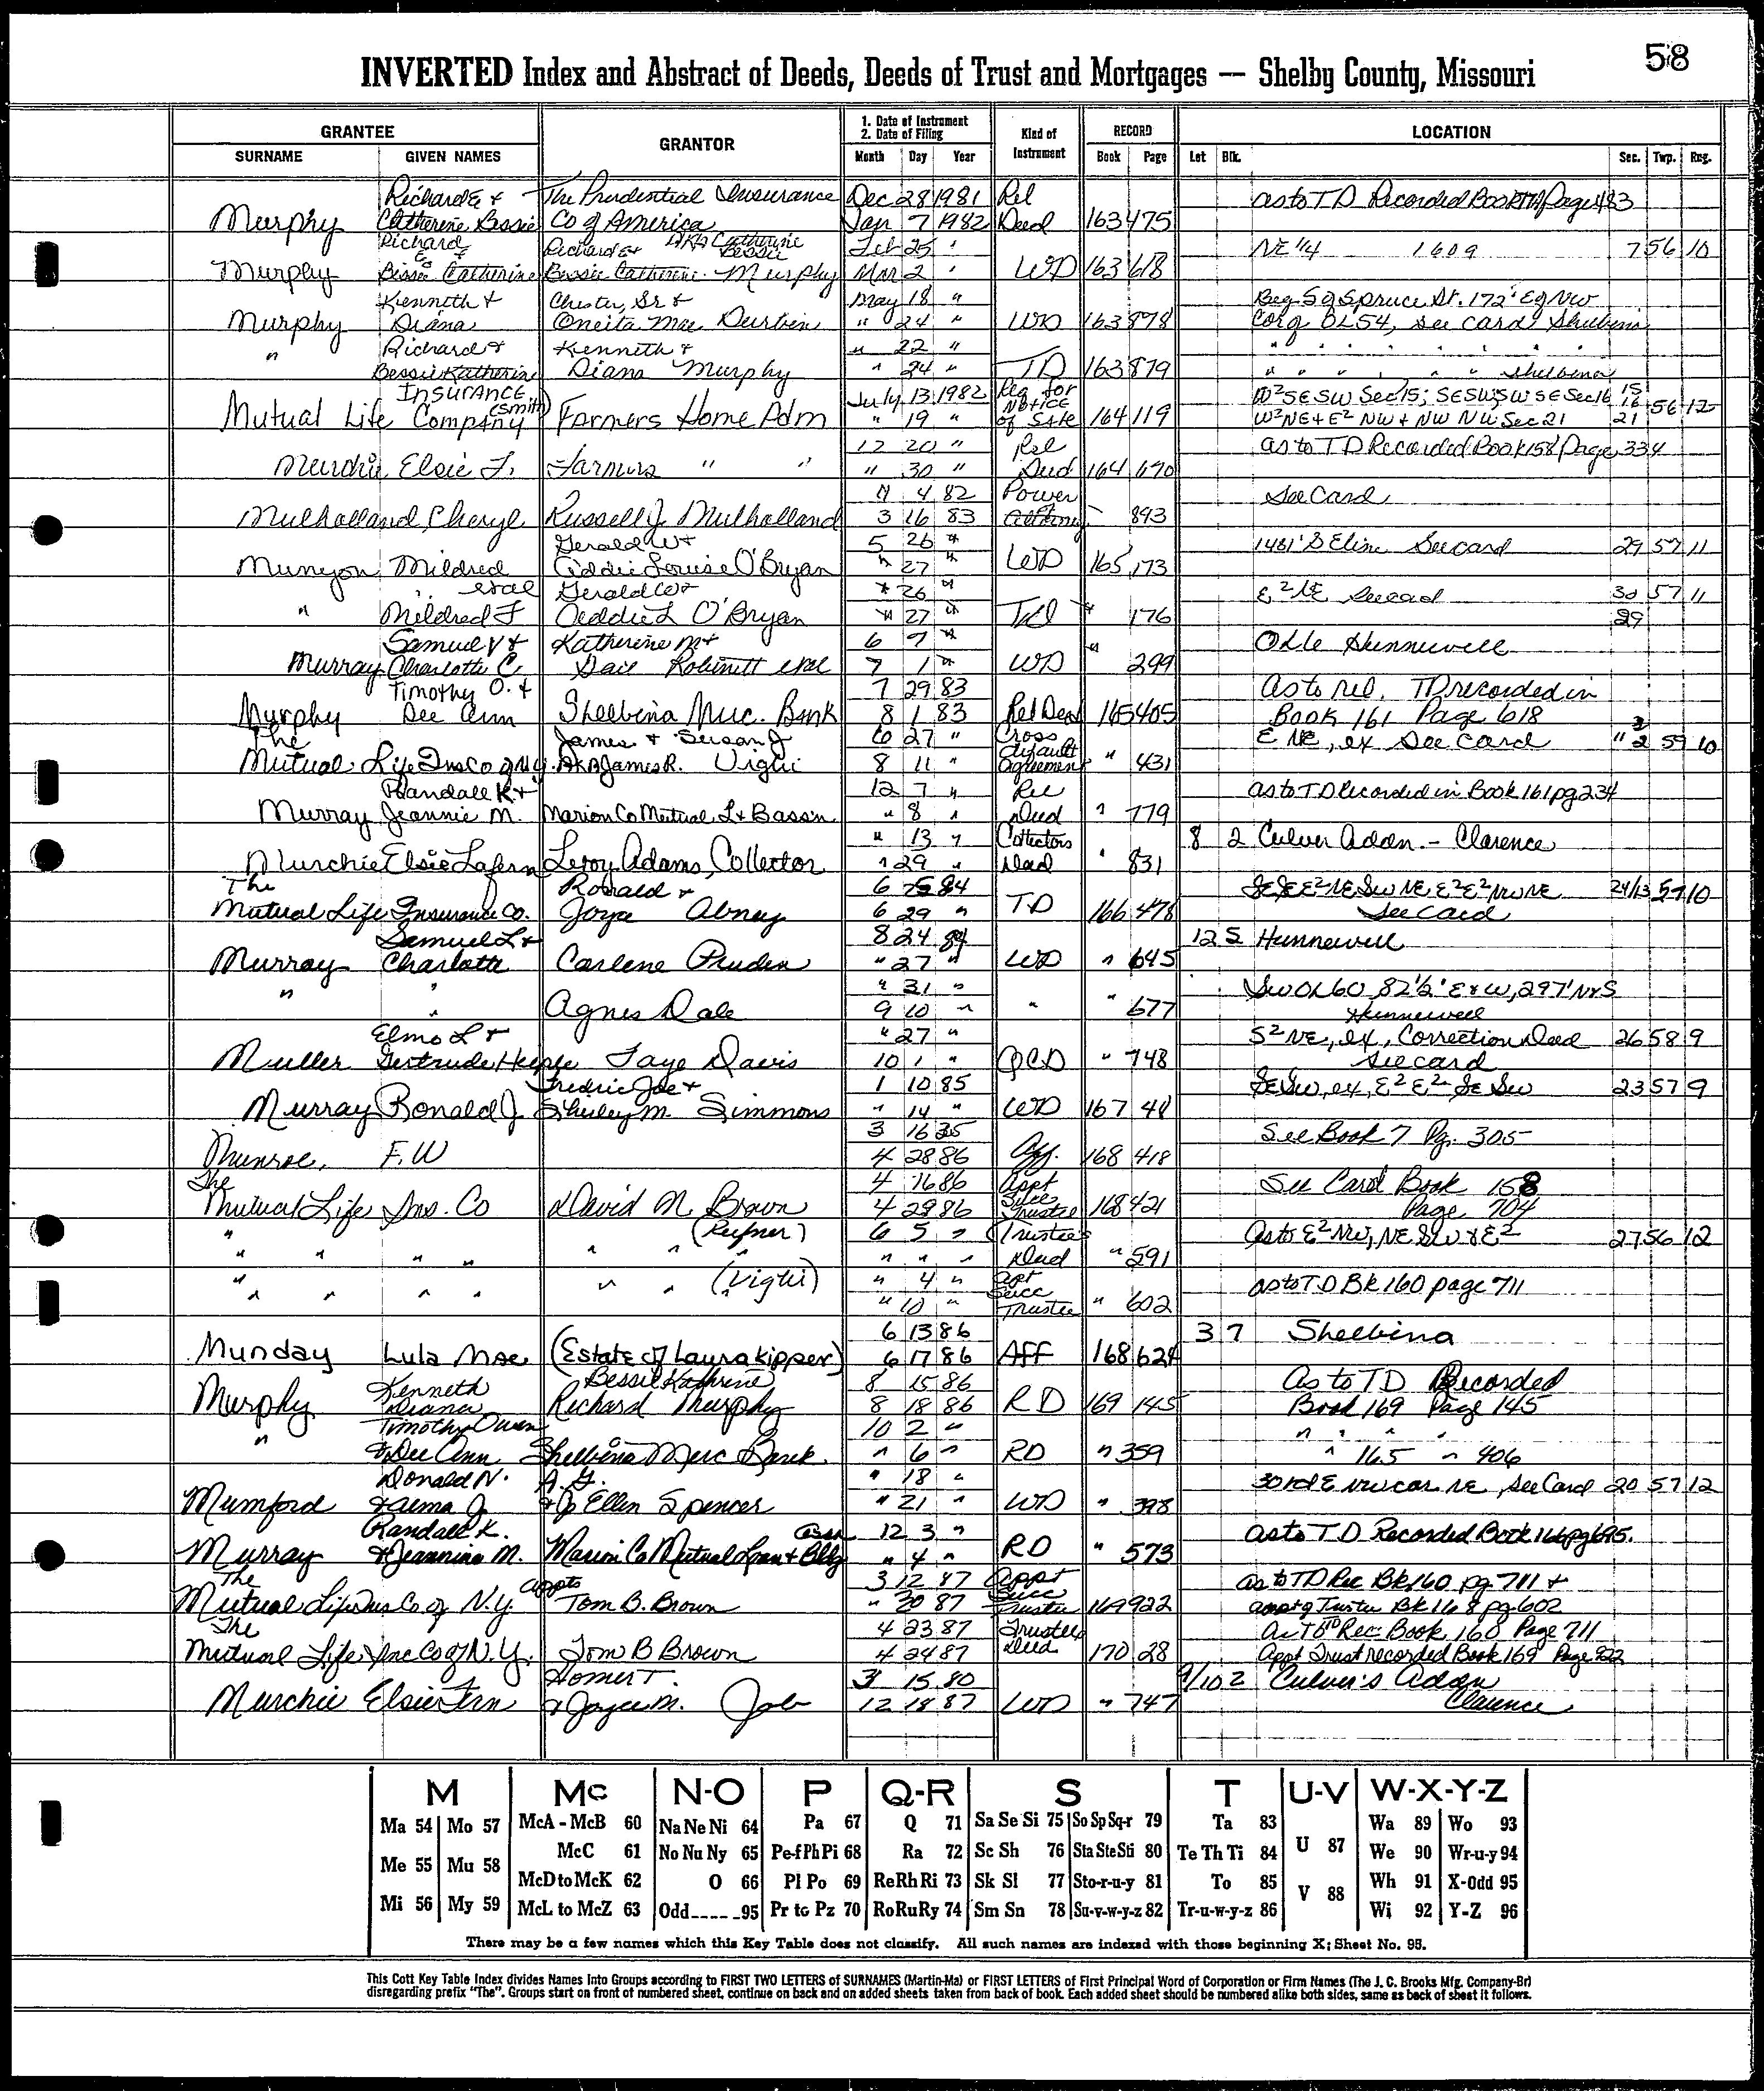 58
INVERTED Index and Abstract of Deeds, Deeds of Trust and Mortgages — Shelby County, Missouri
GRANTEE GRANTOR 1. Date of Instrument 2. Date of Filing Kind of Instrument RECORD LOCATION
SURNAME GIVEN NAMES Month Day Year Book Page Lot Blk. Sec. Twp. Rng.
Richard E + The Prudential Insurance Dec 28 1981 Rel as to TD Recorded Book Page 483
Murphy Catherine Bessie Co of America Jan 7 1982 Deed 163 475
Richard E + Richard E + AKA Catherine Bessie Feb 25 " NE 1/4 1609 7 56 10
Murphy Bessie Catherine Bessie Catherine Murphy Mar 2 " WD 163 618
Kenneth + Chester, Sr + May 18 " Beg S of Spruce St. 172' E of NW
Murphy Diana Oneita Mae Durbin " 24 " WD 163 878 Cor of OL54, see card Shelbina
" Richard + Kenneth + " 22 " " " " " " "
Bessie Katherine Diana Murphy " 24 " TD 163 879 " " " " " Shelbina
Insurance July 13 1982 Req for Notice W²SESW Sec 15; SESW, SWSE Sec 16 15 16
Mutual Life Company (Smith) Farmers Home Adm " 19 " of Sale 164 119 W²NE + E² NW + NW NW Sec 21 21 56 12
12 20 " Rel as to TD Recorded Book 158 Page 334
Murchie Elsie F. Farmers " " " 30 " Deed 164 670
4 82 Power See Card
Mulholland, Cheryl Russell J Mulholland 3 16 83 Attorney 893
Gerald W + 5 26 " 1481' S Eline See card 29 57 11
Munyon Mildred Addie Louise O'Bryan " 27 " WD 165 173
etal Gerald W + " 26 " E² NE See card 30 57 11
" Mildred F Addie L O'Bryan " 27 " Td " 176 29
Samuel V + Katherine M + 6 7 " Hunnewell
Murray Charlotte C. Dail Robinett etal 7 1 " WD " 299
Timothy O. + 7 29 83 As to rel. TD recorded in
Murphy Dee Ann Shelbina Merc. Bank 8 1 83 Rel Deed 165 405 Book 161 Page 618
The James + Susan J 6 27 " Cross default E NE, ex See card 3 2 59 10
Mutual Life Ins Co of N.Y. AKA James R. Vighi 8 11 " Agreement " 431
Randall K + 12 7 " Rel as to TD Recorded in Book 161 pg 234
Murray Jeannie M. Marion Co Mutual L + B assn " 8 " Deed " 779
" 13 " Collectors 8 2 Culver Addn. - Clarence
Murchie Elsie Lafern Leroy Adams, Collector " 29 " Deed " 831
The Ronald + 6 25 84 SESE E²NESWNE, E²E²NWNE 24/13 57 10
Mutual Life Insurance Co. Joyce Abney 6 29 " TD 166 478 See Card
Samuel L + 8 24 84 12 5 Hunnewell
Murray Charlotte Carlene Pruden " 27 " WD " 645
" " " 31 " SW OL60, 82½' E + W, 297' N + S
Agnes Dale 9 10 " " " 677 Hunnewell
Elmo L + " 27 " S² NE, ex, Correction Deed 26 58 9
Muller Gertrude Hepple Faye Davis 10 1 " QCD " 748 see card
Fredric Joe + 1 10 85 SESW, ex, E² E² SE SW 23 57 9
Murray Ronald J Shirley M. Simmons " 14 " WD 167 48
3 16 35 See Book 7 Pg. 305
Munroe, F.W 4 28 86 Aff. 168 418
The 4 16 86 Appt Succ See Card Book 158
Mutual Life Ins. Co David N. Brown 4 29 86 Trustee 168 421 Page 704
" (Rufner) 6 5 " Trustees As to E² NW, NE SW & E² 27 56 12
" " " " " " " " " Deed " 591
" (Vighi) " 4 " Apt Succ as to TD Bk 160 page 711
" " " " " " " 10 " Trustee " 602
6 13 86 3 7 Shelbina
Munday Lula Mae (Estate of Laura Kipper) 6 17 86 AFF 168 624
Kenneth Bessie Kathrine 8 15 86 As to TD Recorded
Murphy Diana Richard Murphy 8 18 86 RD 169 145 Book 169 Page 145
" Timothy Owen 10 2 " " " " "
& Dee Ann Shelbina Merc Bank. " 6 " RD " 359 " 165 " 406
Donald N. A.G. " 18 " 30 rd E nw cor NE, See Card 20 57 12
Mumford & Alma J + Jo Ellen Spencer " 21 " WD " 398
Randall K. Assn 12 3 " as to TD Recorded Book 166 pg 695.
Murray & Jeannine M. Marion Co Mutual Loan + Bldg " 4 " RD " 573
The appts 3 12 87 Appt Succ as to TD Rec Bk 160 pg 711 +
Mutual Life Ins Co. of N.Y. Tom B. Brown " 20 87 Trustee 169 922 appt of Trustee Bk 168 pg 602
The 4 23 87 Trustees As To TD Rec. Book 160 Page 711
Mutual Life Inc Co of N.Y. Tom B Brown 4 24 87 Deed 170 28 Appt Trust recorded Book 169 Page 922
Homer T. 3 15 80 9/10 2 Culver's Addn
Murchie Elsie Fern & Joyce M. Job 12 18 87 WD " 747 Clarence
M Mc N-O P Q-R S T U-V W-X-Y-Z
Ma 54 Mo 57 McA - McB 60 Na Ne Ni 64 Pa 67 Q 71 Sa Se Si 75 So Sp Sq-r 79 Ta 83 U 87 Wa 89 Wo 93
Me 55 Mu 58 McC 61 No Nu Ny 65 Pe-f Ph Pi 68 Ra 72 Sc Sh 76 Sta Ste Sti 80 Te Th Ti 84 V 88 We 90 Wr-u-y 94
McD to McK 62 O 66 Pl Po 69 Re Rh Ri 73 Sk Sl 77 Sto-r-u-y 81 To 85 Wh 91 X-Odd 95
Mi 56 My 59 McL to McZ 63 Odd-----95 Pr to Pz 70 Ro Ru Ry 74 Sm Sn 78 Su-v-w-y-z 82 Tr-u-w-y-z 86 Wi 92 Y-Z 96
There may be a few names which this Key Table does not classify. All such names are indexed with those beginning X; Sheet No. 95.
This Cott Key Table Index divides Names into Groups according to FIRST TWO LETTERS of SURNAMES (Martin-Ma) or FIRST LETTERS of First Principal Word of Corporation or Firm Names (The J. C. Brooks Mfg. Company-Br)
disregarding prefix "The". Groups start on front of numbered sheet, continue on back and on added sheets taken from back of book. Each added sheet should be numbered alike both sides, same as back of sheet it follows.